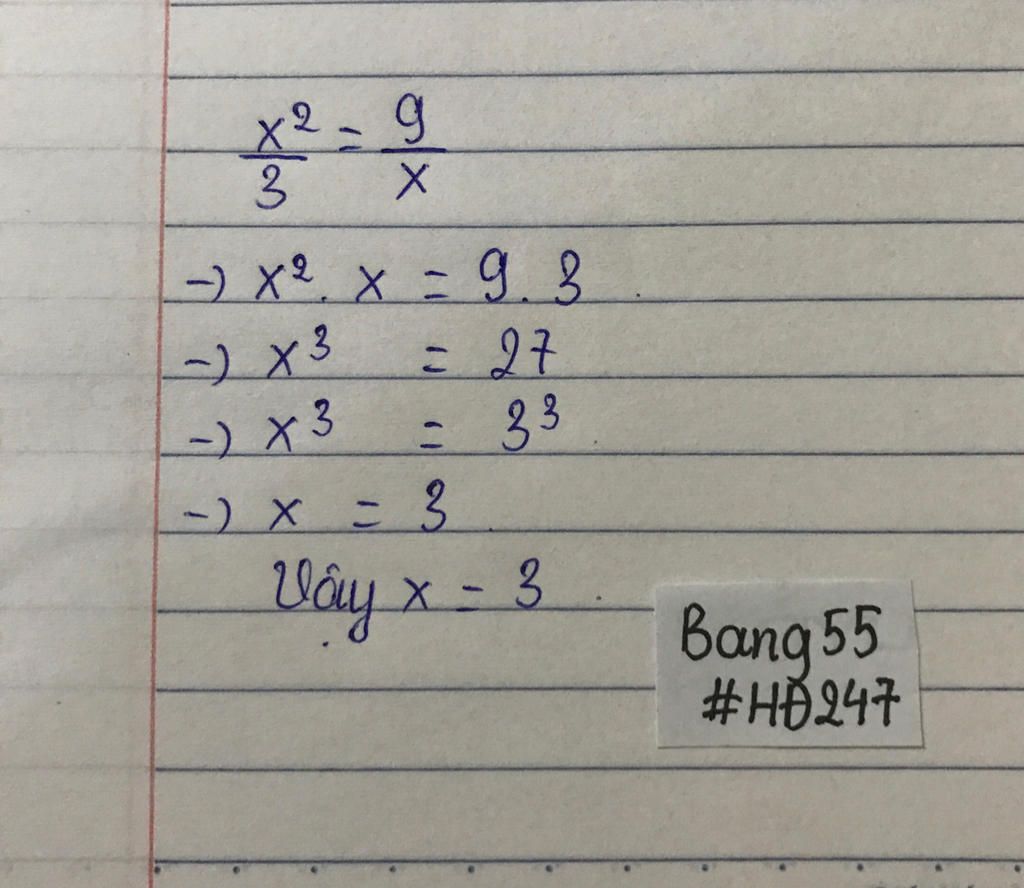 x²/3 = 9/x
→ x² . x = 9 . 3
→ x³ = 27
→ x³ = 3³
→ x = 3
Vậy x = 3
Bang55
#HĐ247